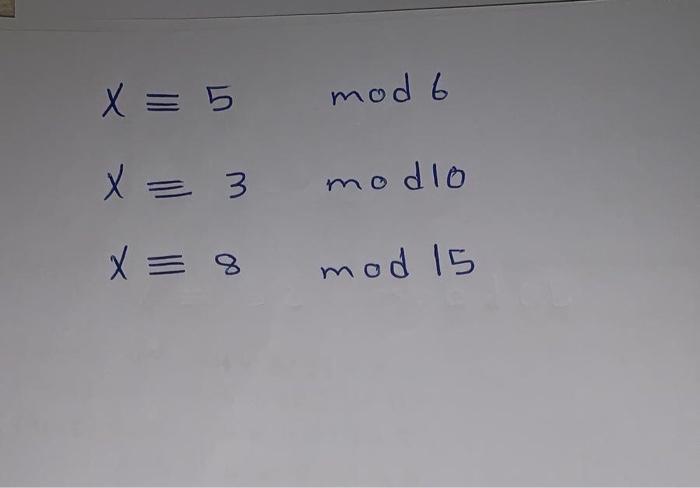 X ≡ 5 mod 6
X ≡ 3 mod 10
X ≡ 8 mod 15